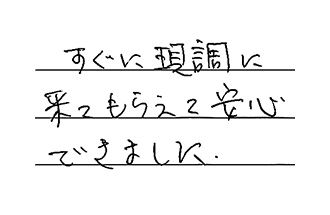 すぐに現調に
来てもらえて安心
できました.